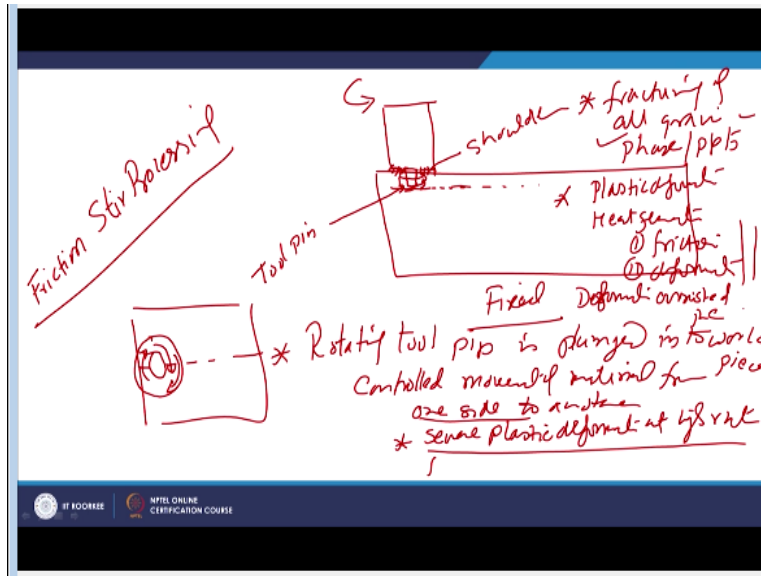 Friction Stir Processing
shoulder
Tool pin
* fracturing of
all grain
phase/ppts
* Plastic deformt
Heat generat
① friction
② deformt
Fixed
* Rotating tool pin is plunged into work
piece
Controlled movement of material from
one side to another
* severe plastic deformt at high rate
IIT ROORKEE
NPTEL ONLINE
CERTIFICATION COURSE